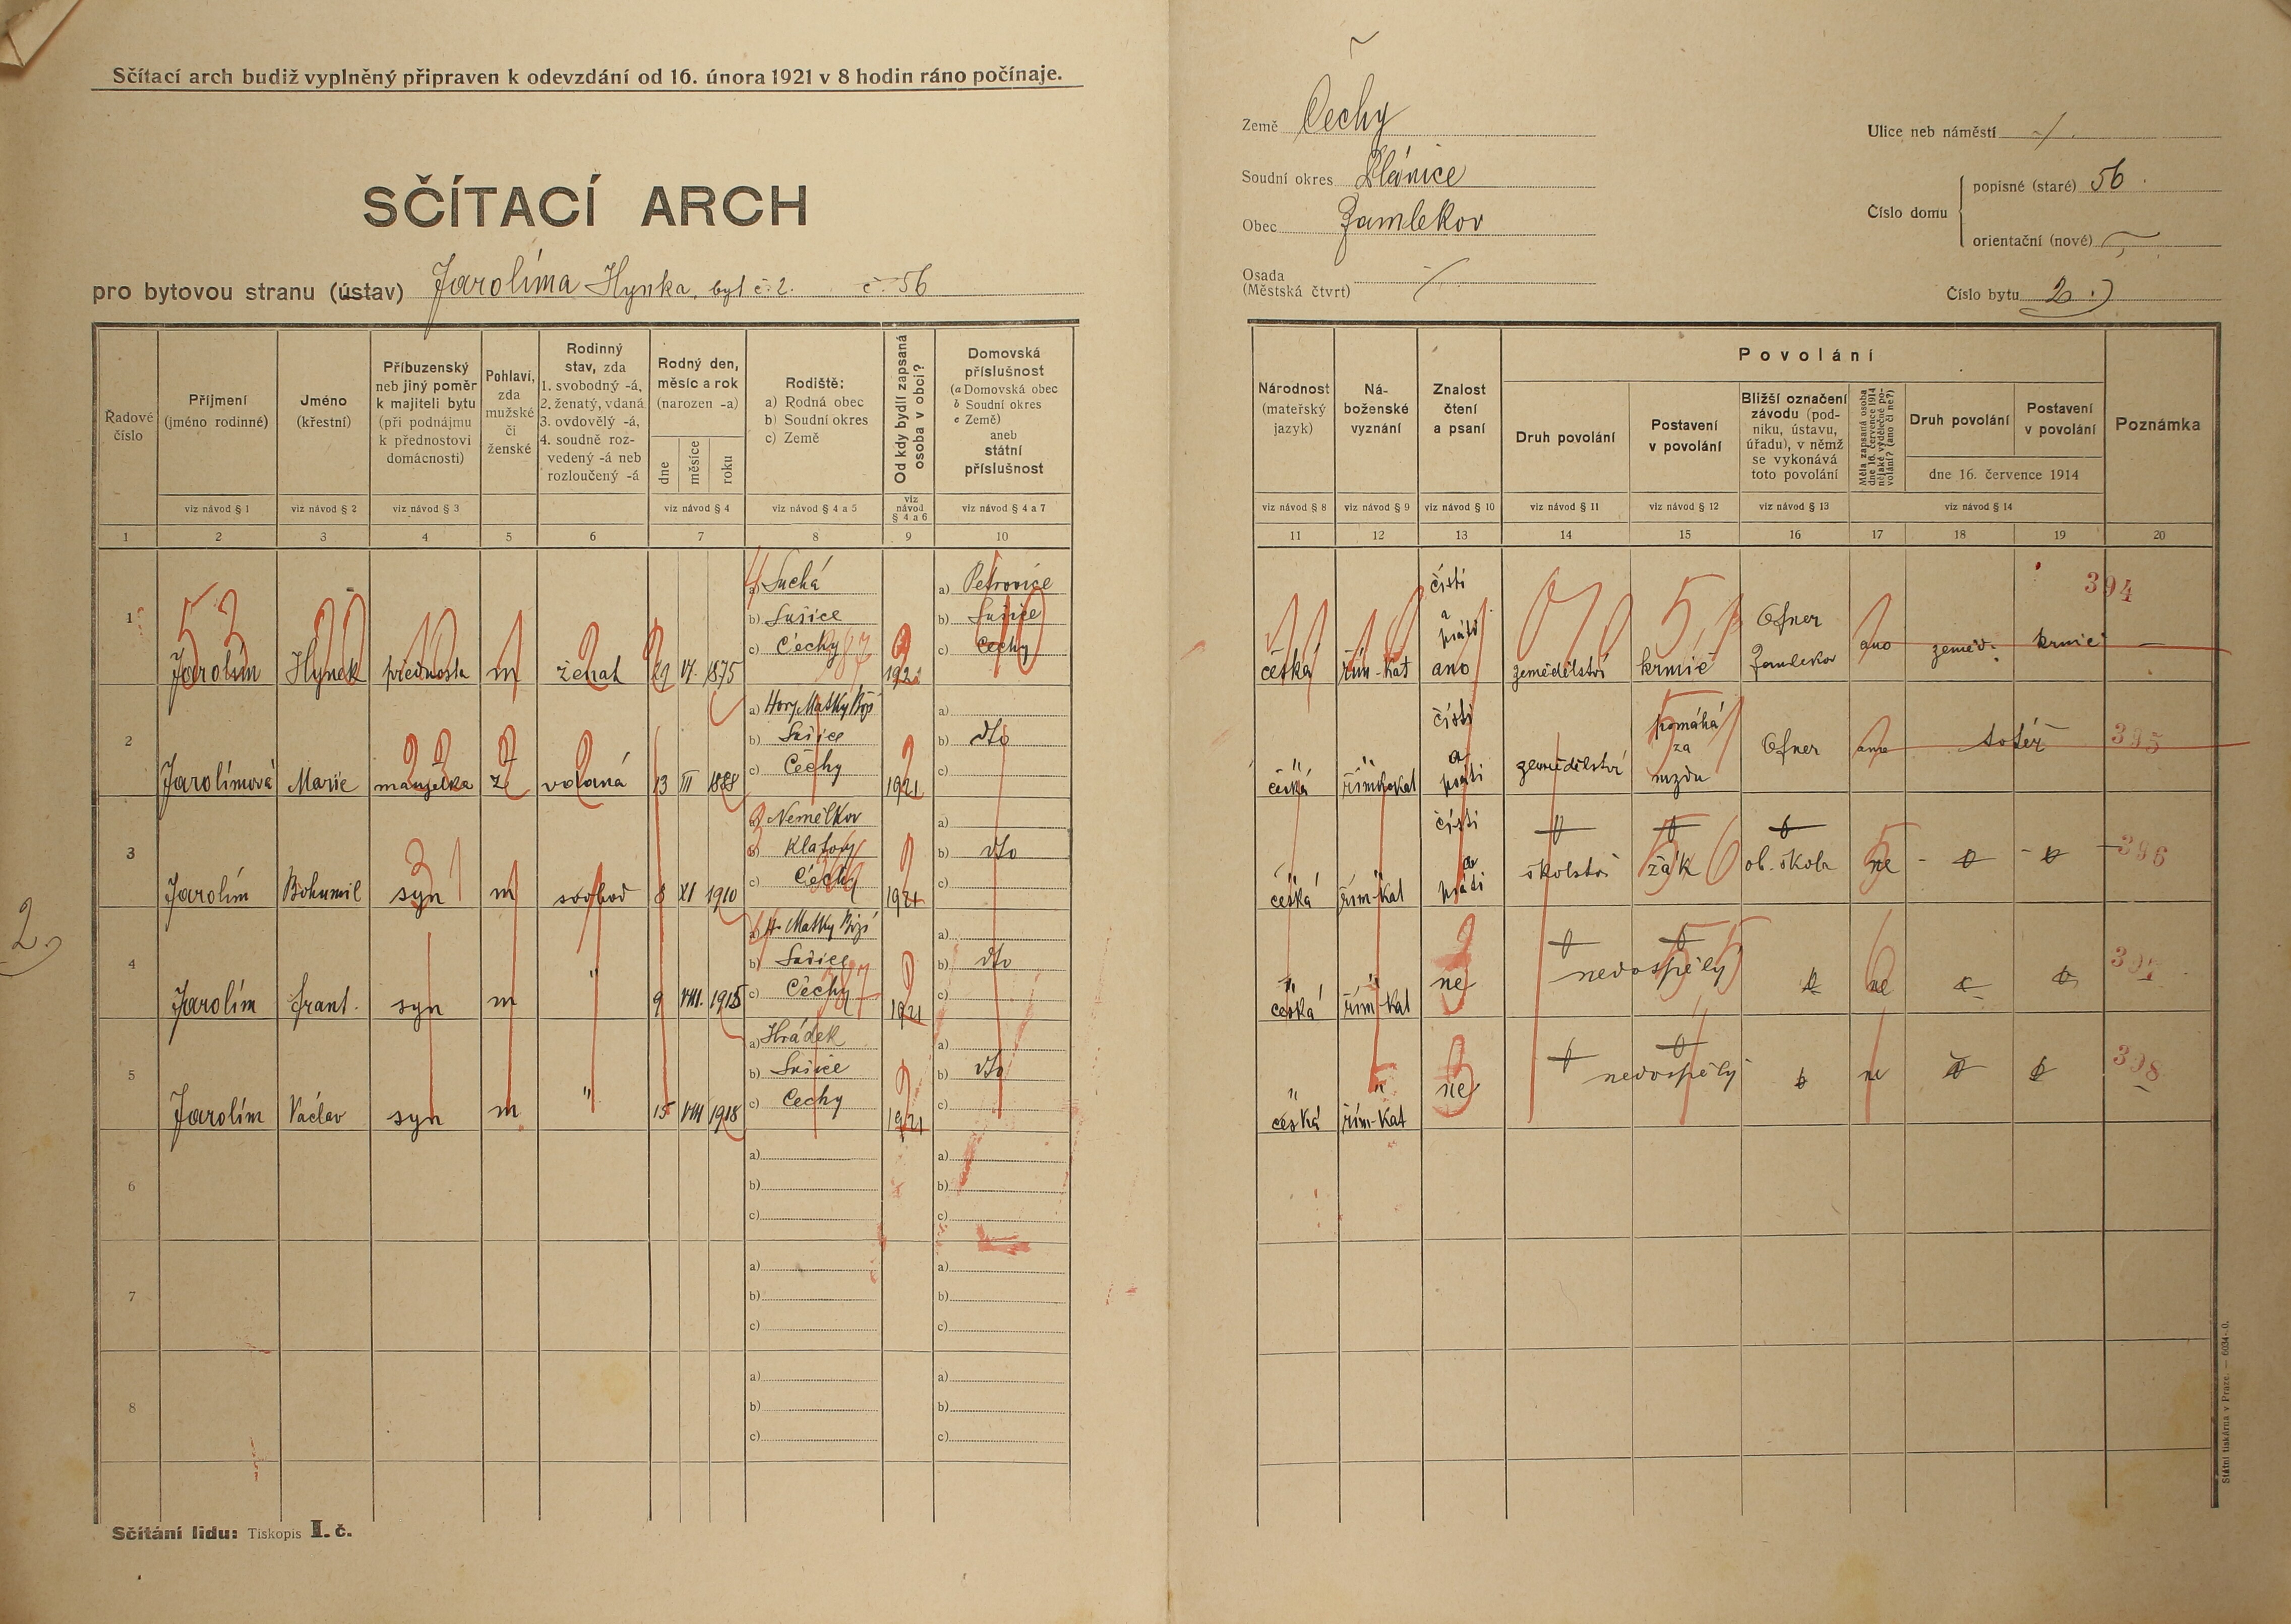 Sčítací arch budiž vyplněný připraven k odevzdání od 16. února 1921 v 8 hodin ráno počínaje.
SČÍTACÍ ARCH
pro bytovou stranu (ústav) Jarolíma Hynka, byt č. 2. č. 56
Země Čechy
Soudní okres Plánice
Obec Zamlekov
Osada
(Městská čtvrť)
Ulice neb náměstí
Číslo domu
popisné (staré) 56.
orientační (nové)
Číslo bytu 2.)
Řadové číslo
Příjmení (jméno rodinné)
Jméno (křestní)
Příbuzenský neb jiný poměr k majiteli bytu (při podnájmu k přednostovi domácnosti)
Pohlaví, zda mužské či ženské
Rodinný stav, zda 1. svobodný -á, 2. ženatý, vdaná 3. ovdovělý -á, 4. soudně rozvedený -á neb rozloučený -á
Rodný den, měsíc a rok (narozen -a)
dne měsíce roku
Rodiště: a) Rodná obec b) Soudní okres c) Země
Od kdy bydlí zapsaná osoba v obci?
Domovská příslušnost (a Domovská obec b Soudní okres c Země) aneb státní příslušnost
viz návod § 1 viz návod § 2 viz návod § 3 viz návod § 4 viz návod § 4 a 5 viz návod § 4 a 6 viz návod § 4 a 7
1 2 3 4 5 6 7 8 9 10
Národnost (mateřský jazyk)
Náboženské vyznání
Znalost čtení a psaní
Povolání
Druh povolání
Postavení v povolání
Bližší označení závodu (podniku, ústavu, úřadu), v němž se vykonává toto povolání
Měla zapsaná osoba dne 16. července 1914 nějaké výdělečné povolání? (ano či ne?)
Druh povolání
Postavení v povolání
dne 16. července 1914
Poznámka
viz návod § 8 viz návod § 9 viz návod § 10 viz návod § 11 viz návod § 12 viz návod § 13 viz návod § 14
11 12 13 14 15 16 17 18 19 20
1 Jarolím Hynek přednosta m ženat 1875 a) Suchá b) Sušice c) Čechy a) Petrovice b) Sušice c) Čechy
česká řím-kat čísti a psáti ano zemědělství krmič Ofner Zamlekov ano zeměd. krmič 394
2 Jarolímová Marie manželka ž vdaná 13 III 1888 a) Hory Matky Boží b) Sušice c) Čechy 1921 b) dto
" česká " čísti a psáti zemědělství pomáhá za mzdu Ofner totéž 395
3 Jarolím Bohumil syn m svobod 8 XI 1910 a) Nemělkov b) Klatovy c) Čechy 1921 b) dto
česká řím-kat čísti a psáti školství žák ob. škola ne 396
4 Jarolím Frant. syn m " 9 VIII. 1915 a) H. Matky Boží b) Sušice c) Čechy 1921 b) dto
" česká " řím-kat ne nedospělý ne 397
5 Jarolím Václav syn m " 15 VIII 1918 a) Hrádek b) Sušice c) Čechy 1921 b) dto
" česká " řím-kat ne nedospělý ne 398
6 a) b) c) a) b) c)
7 a) b) c) a) b) c)
8 a) b) c) a) b) c)
2.)
Sčítání lidu: Tiskopis I. č.
Státní tiskárna v Praze. — 6034-0.